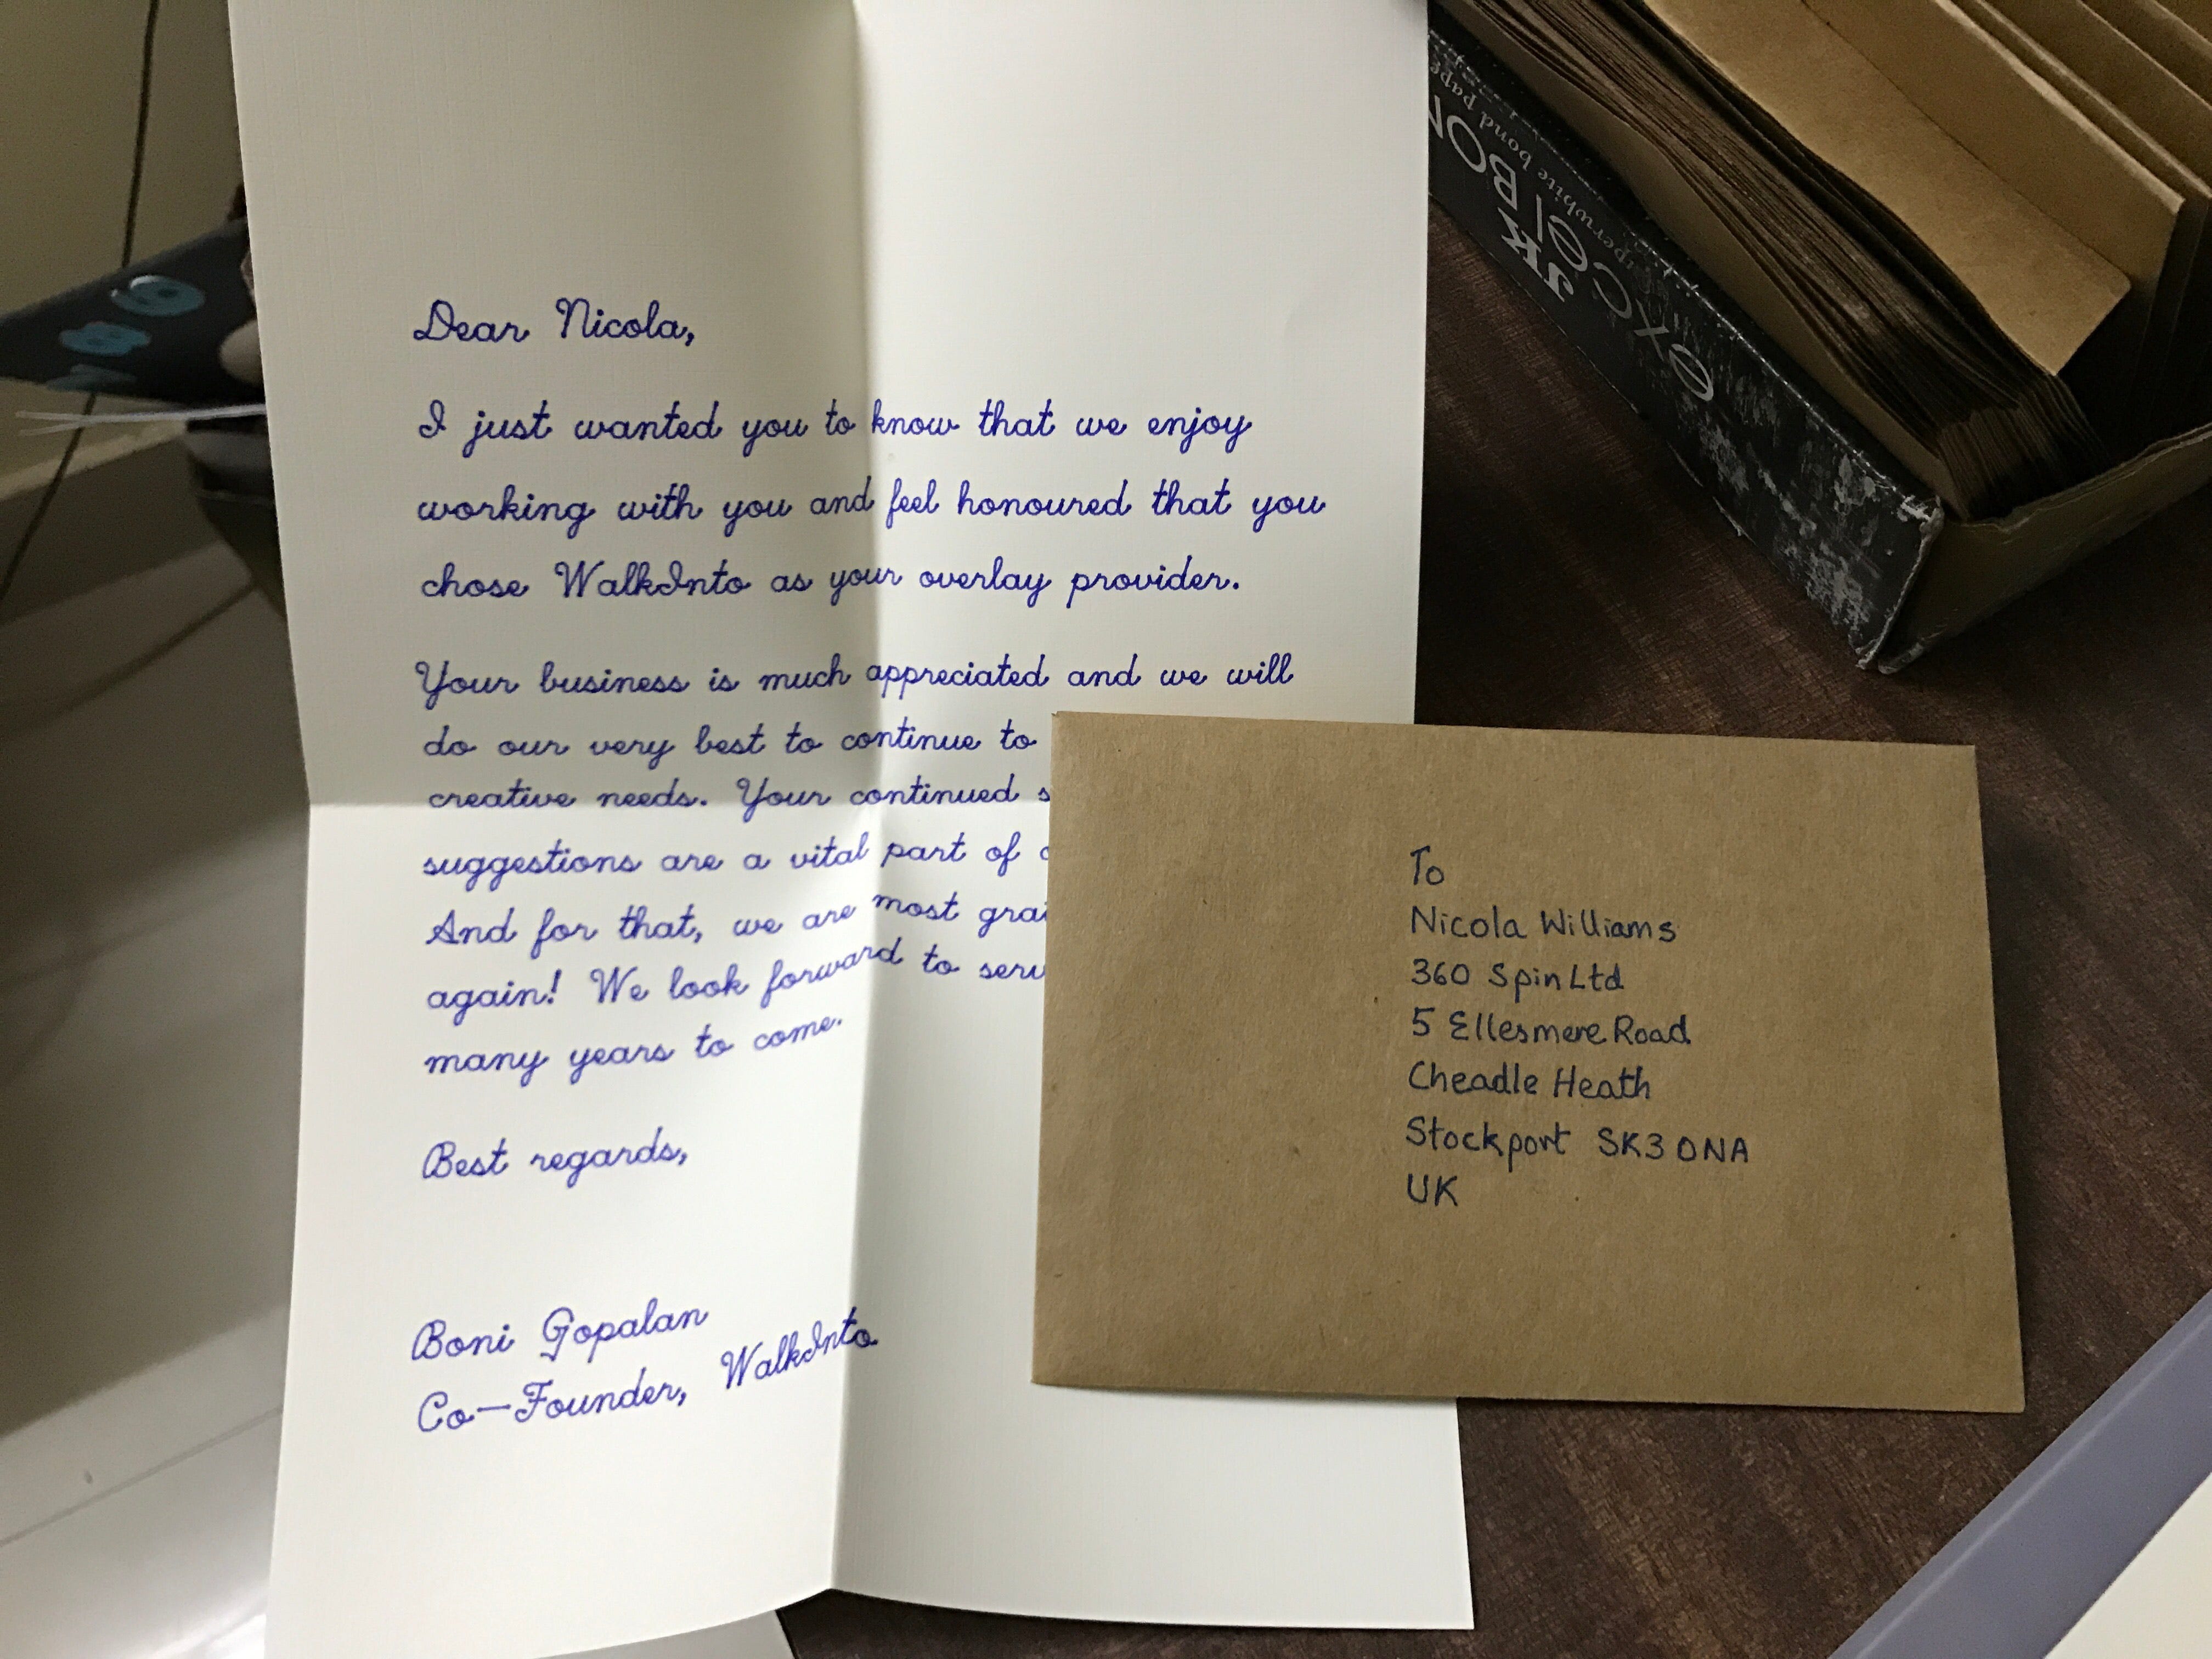 Dear Nicola,
I just wanted you to know that we enjoy
working with you and feel honoured that you
chose WalkInto as your overlay provider.
Your business is much appreciated and we will
do our very best to continue to
creative needs. Your continued
suggestions are a vital part of
And for that, we are most
again! We look forward to
many years to come.
Best regards,
Boni Gopalan
Co-Founder, WalkInto
To
Nicola Williams
360 Spin Ltd
5 Ellesmere Road
Cheadle Heath
Stockport SK3 0NA
UK
JK
excel
bond